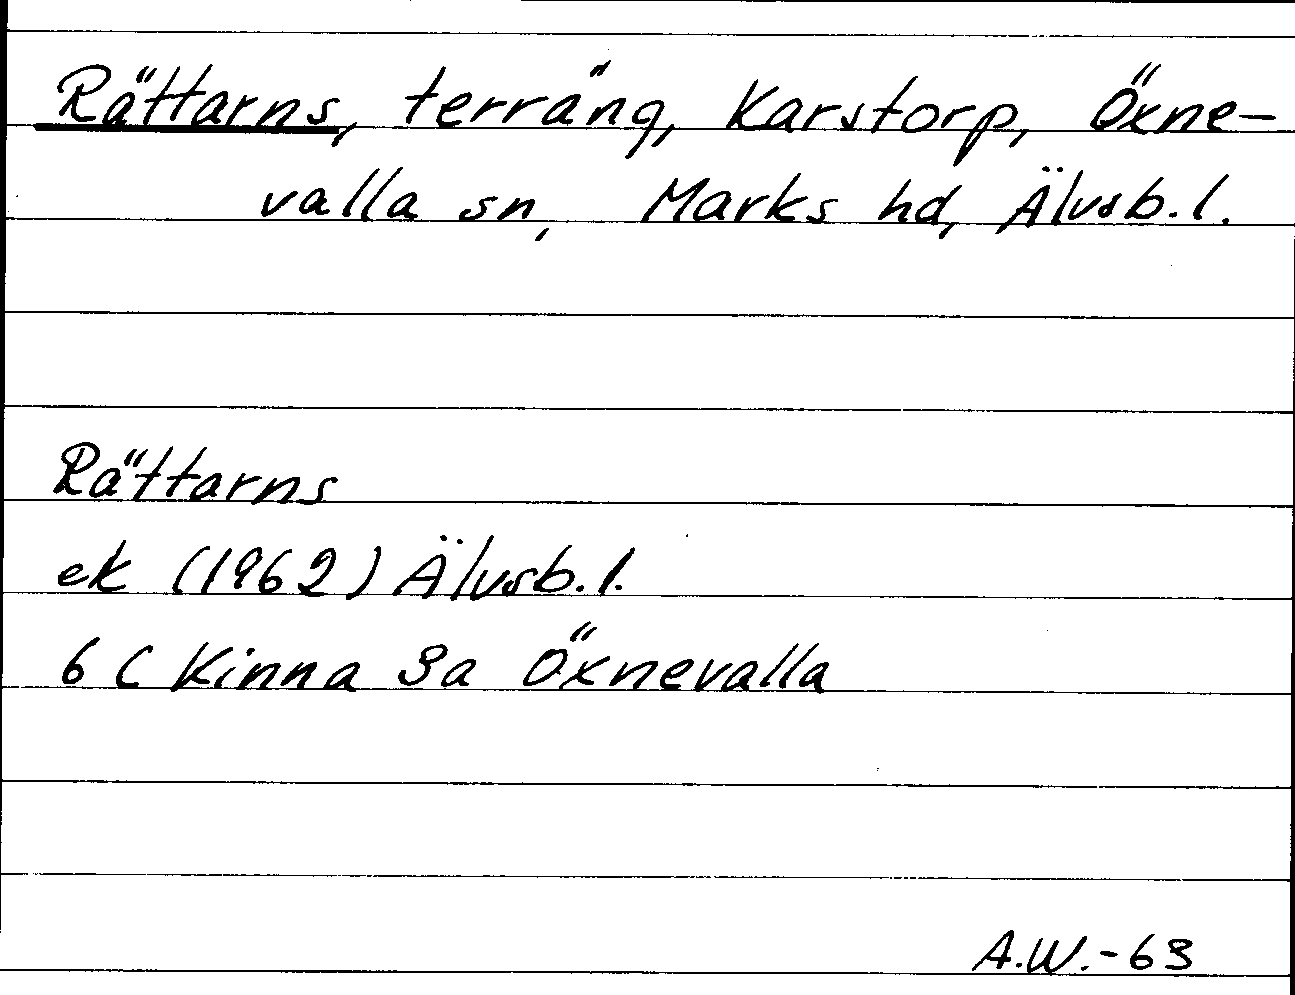 Rättarns, terräng, Karstorp, Öxne-
valla sn, Marks hd, Älvsb. l.
Rättarns
ek (1962) Älvsb. l.
6 C Kinna 3a Öxnevalla
A.W.-63